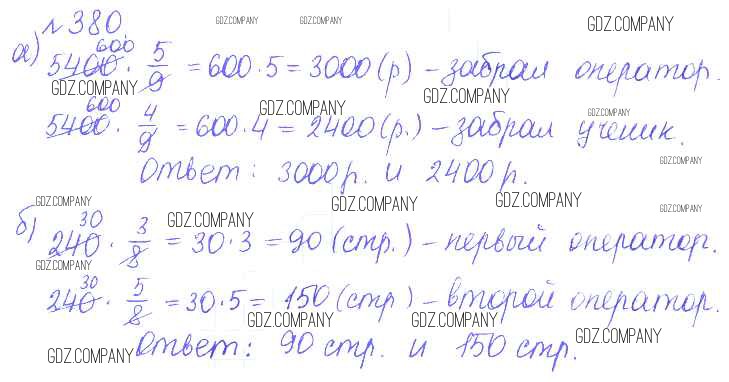 №380.
GDZ.COMPANY GDZ.COMPANY GDZ.COMPANY
а) 5400 600 · 5/9 = 600 · 5 = 3000 (р) – забрал оператор.
GDZ.COMPANY GDZ.COMPANY GDZ.COMPANY
5400 600 · 4/9 = 600 · 4 = 2400 (р.) – забрал ученик.
GDZ.COMPANY
Ответ: 3000 р. и 2400 р.
GDZ.COMPANY
GDZ.COMPANY GDZ.COMPANY GDZ.COMPANY GDZ.COMPANY GDZ.COMPANY
б) 240 30 · 3/8 = 30 · 3 = 90 (стр.) – первый оператор.
GDZ.COMPANY
240 30 · 5/8 = 30 · 5 = 150 (стр) – второй оператор.
GDZ.COMPANY GDZ.COMPANY GDZ.COMPANY
Ответ: 90 стр. и 150 стр.
GDZ.COMPANY